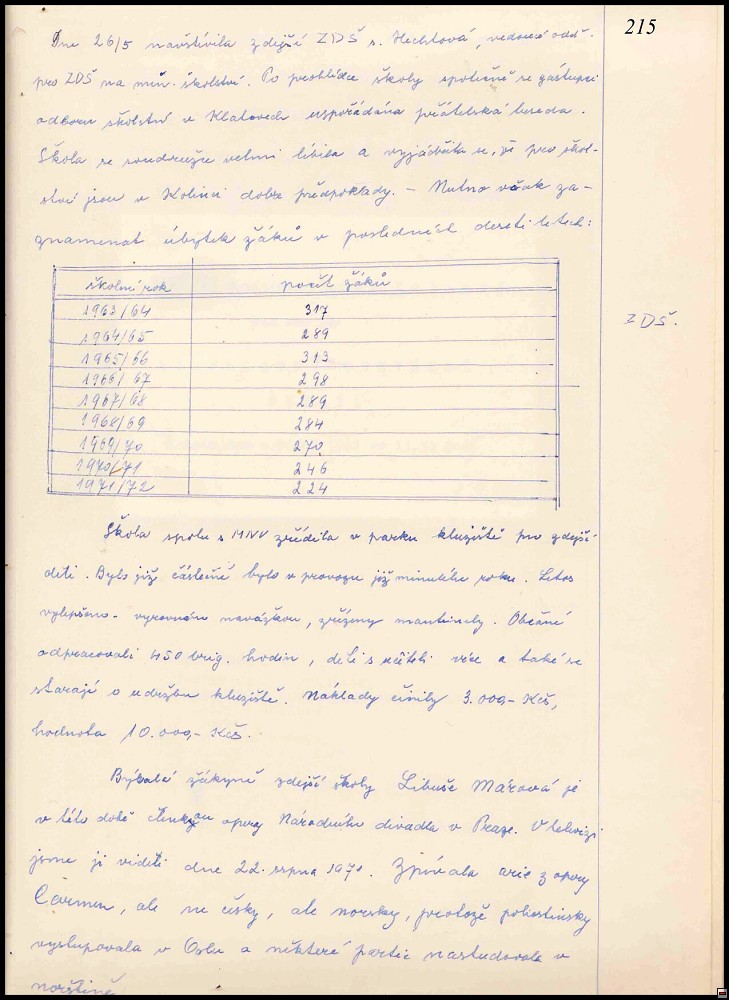 215
Dne 26/5 navštívila zdejší ZDŠ s. Hechtová, vedoucí odd.
pro ZDŠ na min. školství. Po prohlídce školy společně se zástupci
odboru školství v Klatovech uspořádána přátelská beseda.
Škola se soudružce velmi líbila a vyjádřila se, že pro škol-
ství jsou v Kolinci dobré předpoklady. – Nutno však za-
znamenat úbytek žáků v posledních deseti letech:
školní rok počet žáků
1963/64 317
1964/65 289
1965/66 313
ZDŠ.
1966/67 298
1967/68 289
1968/69 284
1969/70 270
1970/71 246
1971/72 224
Škola spolu s MNV zřídila v parku kluziště pro zdejší
děti. Bylo již částečně bylo v provozu již minulého roku. Letos
vylepšeno - vyrovnáno navážkou, zřízeny mantinely. Občané
odpracovali 450 brig. hodin, děti s učiteli více a také se
starají o udržbu kluziště. Náklady činily 3.000,- Kčs,
hodnota 10.000,- Kčs.
Bývalá žákyně zdejší školy Libuše Márová je
v této době členkou opery Národního divadla v Praze. V televizi
jsme ji viděli dne 22. srpna 1971. Zpívala arie z opery
Carmen, ale ne česky, ale norsky, protože pohostinsky
vystupovala v Oslu a některé partie nastudovala v
norštině